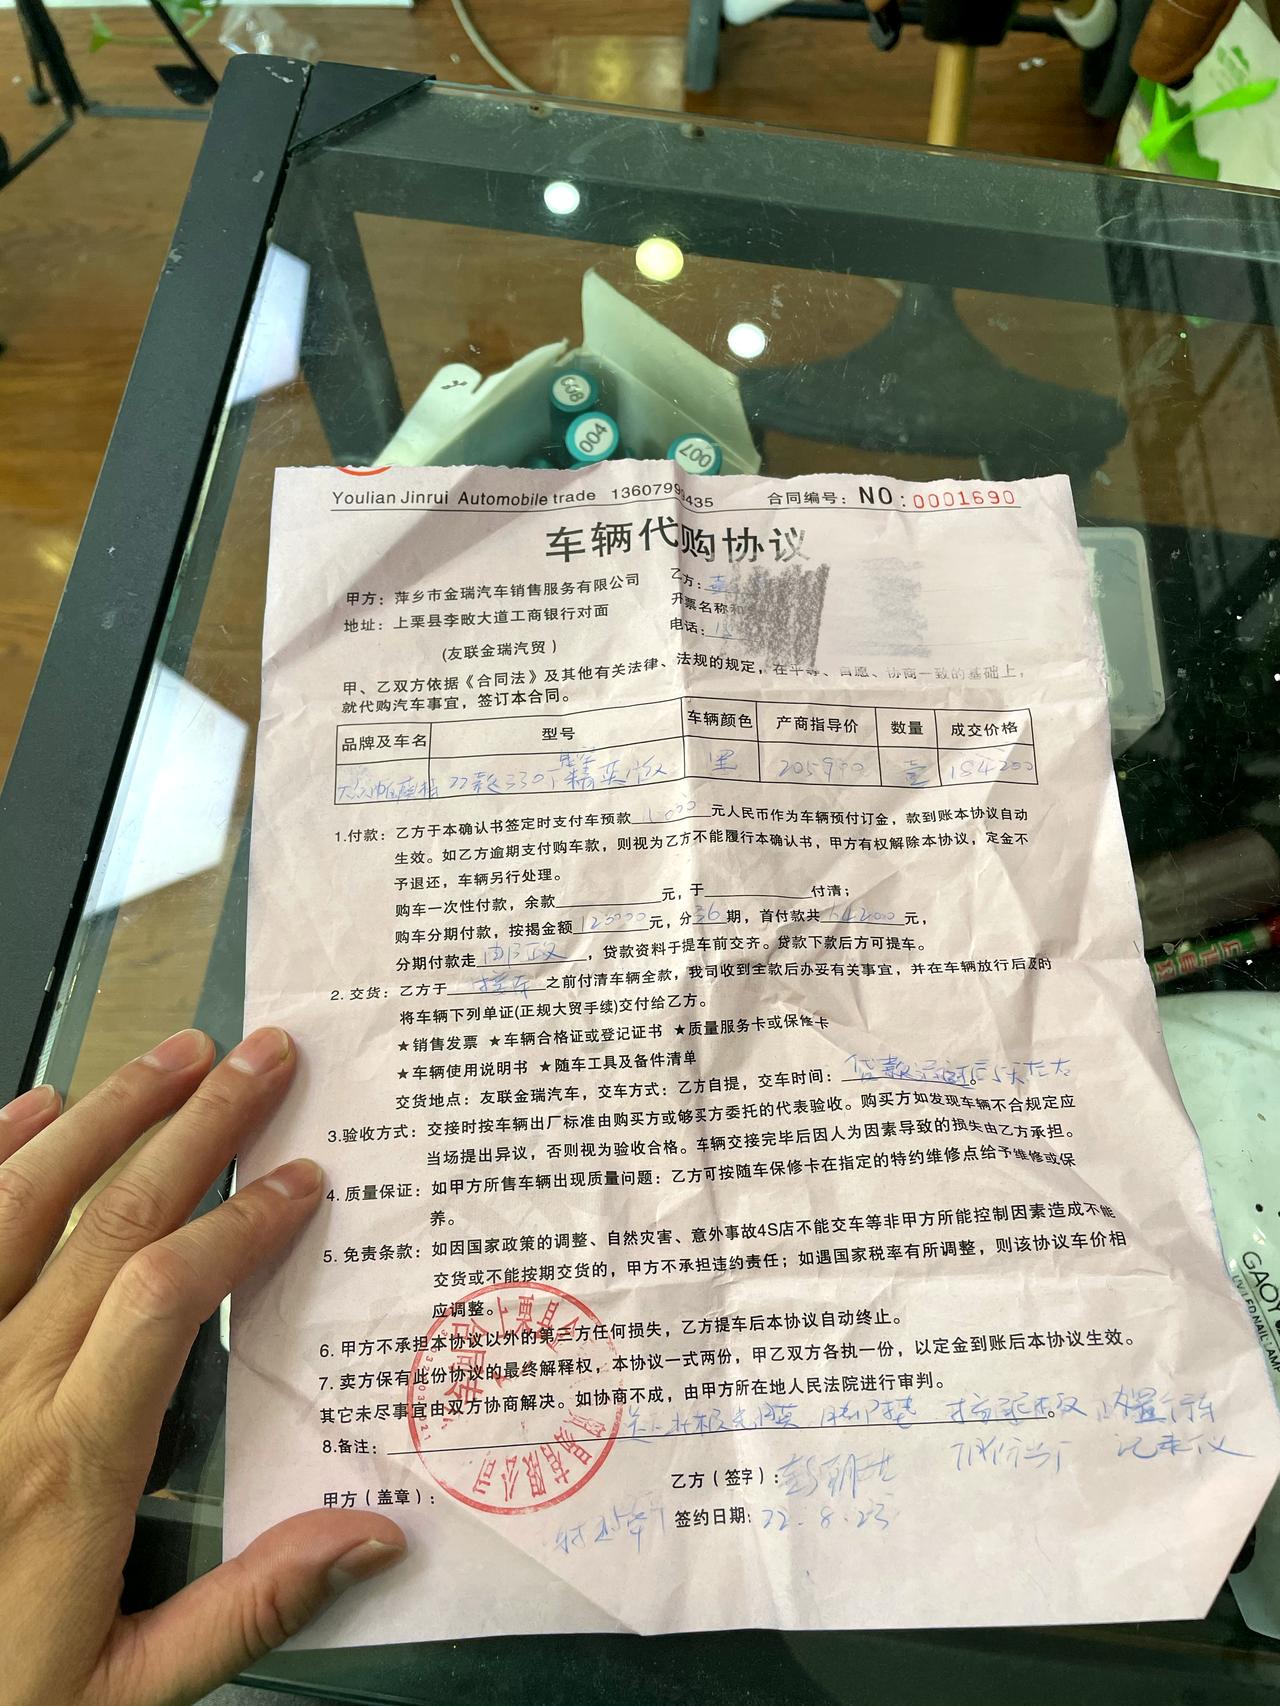 Youlian Jinrui Automobile trade 13607999435 合同编号：NO:0001690
车辆代购协议
甲方：萍乡市金瑞汽车销售服务有限公司
地址：上栗县李畋大道工商银行对面
(友联金瑞汽贸)
乙方：
开票名称和
电话：
甲、乙双方依据《合同法》及其他有关法律、法规的规定，在平等、自愿、协商一致的基础上，
就代购汽车事宜，签订本合同。
品牌及车名 型号 车辆颜色 产商指导价 数量 成交价格
22款330 精英 黑 205900 壹 184200
1.付款：乙方于本确认书签定时支付车预款 元人民币作为车辆预付订金，款到账本协议自动
生效。如乙方逾期支付购车款，则视为乙方不能履行本确认书，甲方有权解除本协议，定金不
予退还，车辆另行处理。
购车一次性付款，余款 元，于 付清；
购车分期付款，按揭金额 120000 元，分 36 期，首付款共 64200 元，
分期付款走 邮政 ，贷款资料于提车前交齐。贷款下款后方可提车。
2. 交货：乙方于 接车 之前付清车辆全款，我司收到全款后办妥有关事宜，并在车辆放行后及时
将车辆下列单证(正规大贸手续)交付给乙方。
★销售发票 ★车辆合格证或登记证书 ★质量服务卡或保修卡
★车辆使用说明书 ★随车工具及备件清单
交货地点：友联金瑞汽车，交车方式：乙方自提，交车时间：贷款 后5天左右。
3.验收方式：交接时按车辆出厂标准由购买方或够买方委托的代表验收。购买方如发现车辆不合规定应
当场提出异议，否则视为验收合格。车辆交接完毕后因人为因素导致的损失由乙方承担。
4. 质量保证：如甲方所售车辆出现质量问题：乙方可按随车保修卡在指定的特约维修点给予维修或保
养。
5. 免责条款：如因国家政策的调整、自然灾害、意外事故4S店不能交车等非甲方所能控制因素造成不能
交货或不能按期交货的，甲方不承担违约责任；如遇国家税率有所调整，则该协议车价相
应调整。
6. 甲方不承担本协议以外的第三方任何损失，乙方提车后本协议自动终止。
7. 卖方保有此份协议的最终解释权，本协议一式两份，甲乙双方各执一份，以定金到账后本协议生效。
其它未尽事宜由双方协商解决。如协商不成，由甲方所在地人民法院进行审判。
8.备注： 内置行车
记录仪
甲方（盖章）：
乙方（签字）：
签约日期：22.8.23
008
004
007
GAOY
UV/LED NAIL